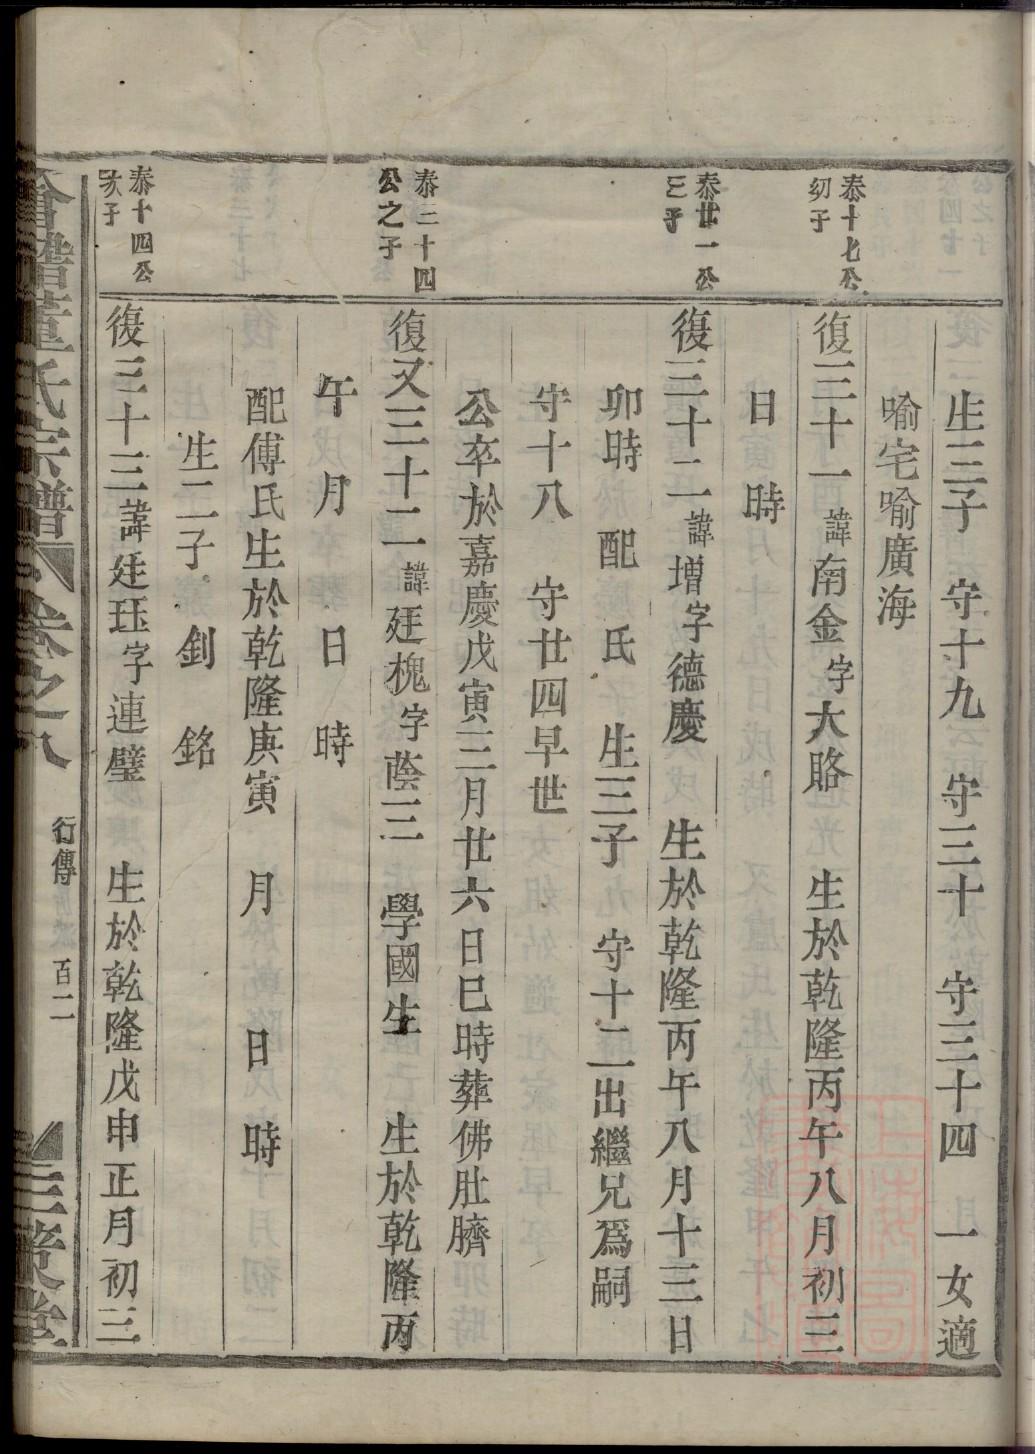 生三子　守十九　守三十　守三十四　一女適
喻宅喻廣海
泰十七公
幼子
復三十一諱南金字大賂　生於乾隆丙午八月初三
日　時
泰廿一公
三子
復三十二諱增字德慶　生於乾隆丙午八月十三日
卯時　配　氏　生三子　守十二出繼兄爲嗣
守十八　守廿四早世
公卒於嘉慶戊寅三月廿六日巳時葬佛肚臍
泰二十四
公之子
復又三十二諱廷槐字蔭三　學國生　生於乾隆丙
午　月　日　時
配傅氏生於乾隆庚寅　月　日　時
生二子　釗　銘
泰十四公
次子
復三十三諱廷珏字連璧　生於乾隆戊申正月初三
董氏宗譜　卷之八　行傳　百二　三策堂